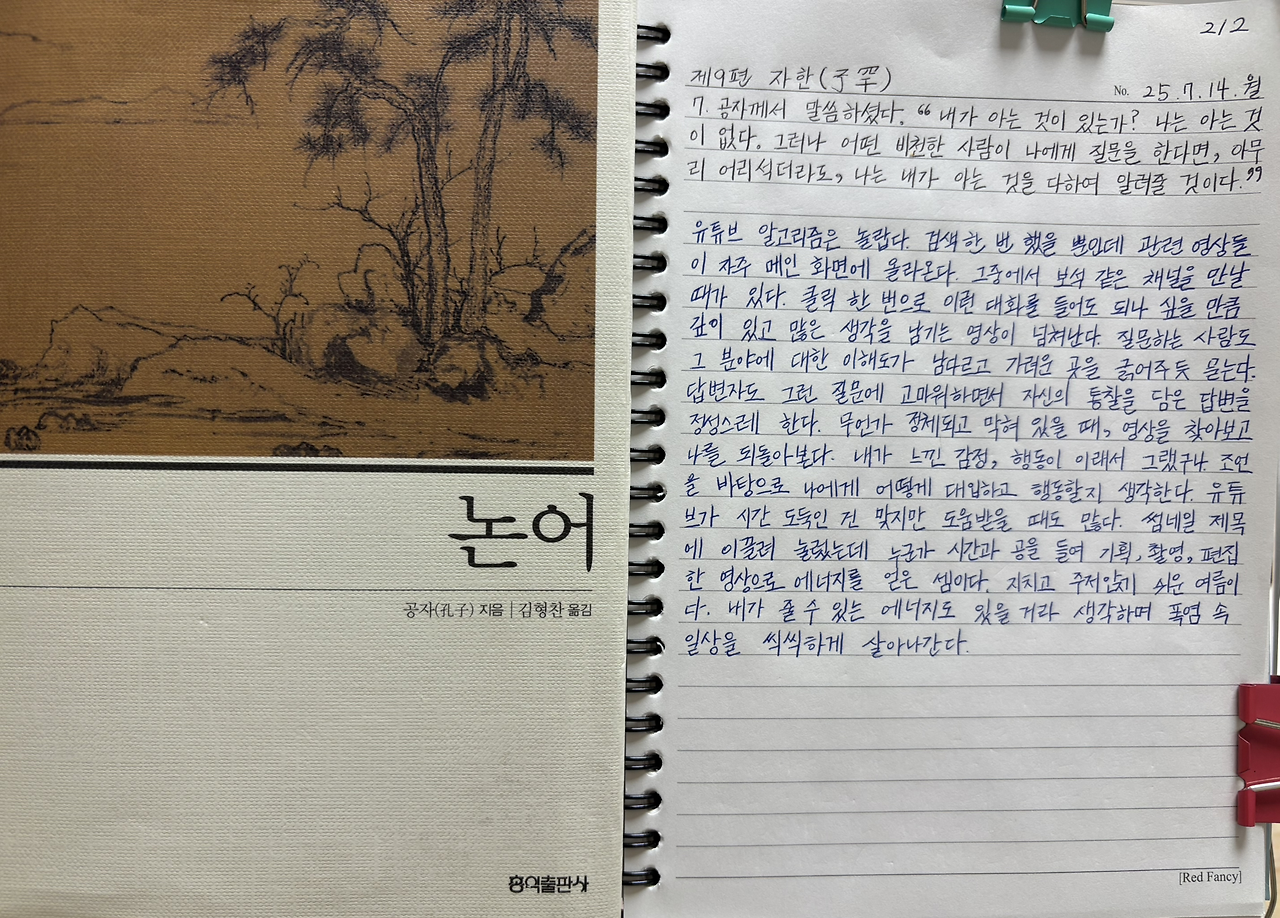 논어
공자(孔子) 지음 | 김형찬 옮김
홍익출판사
212
제9편 자한(子罕)
No. 25.7.14.월
7. 공자께서 말씀하셨다. "내가 아는 것이 있는가? 나는 아는 것
이 없다. 그러나 어떤 비천한 사람이 나에게 질문을 한다면, 아무
리 어리석더라도, 나는 내가 아는 것을 다하여 알려줄 것이다."
유튜브 알고리즘은 놀랍다. 검색 한 번 했을 뿐인데 관련 영상들
이 자주 메인 화면에 올라온다. 그중에서 보석 같은 채널을 만날
때가 있다. 클릭 한 번으로 이런 대화를 들어도 되나 싶을 만큼
깊이 있고 많은 생각을 남기는 영상이 넘쳐난다. 질문하는 사람도
그 분야에 대한 이해도가 남다르고 가려운 곳을 긁어주듯 묻는다.
답변자도 그런 질문에 고마워하면서 자신의 통찰을 담은 답변을
정성스레 한다. 무언가 정체되고 막혀 있을 때, 영상을 찾아보고
나를 되돌아본다. 내가 느낀 감정, 행동이 이래서 그랬구나. 조언
을 바탕으로 나에게 어떻게 대입하고 행동할지 생각한다. 유튜
브가 시간 도둑인 건 맞지만 도움받을 때도 많다. 썸네일 제목
에 이끌려 눌렀는데 누군가 시간과 공을 들여 기획, 촬영, 편집
한 영상으로 에너지를 얻은 셈이다. 지치고 주저앉기 쉬운 여름이
다. 내가 줄 수 있는 에너지도 있을 거라 생각하며 폭염 속
일상을 씩씩하게 살아나간다.
[Red Fancy]